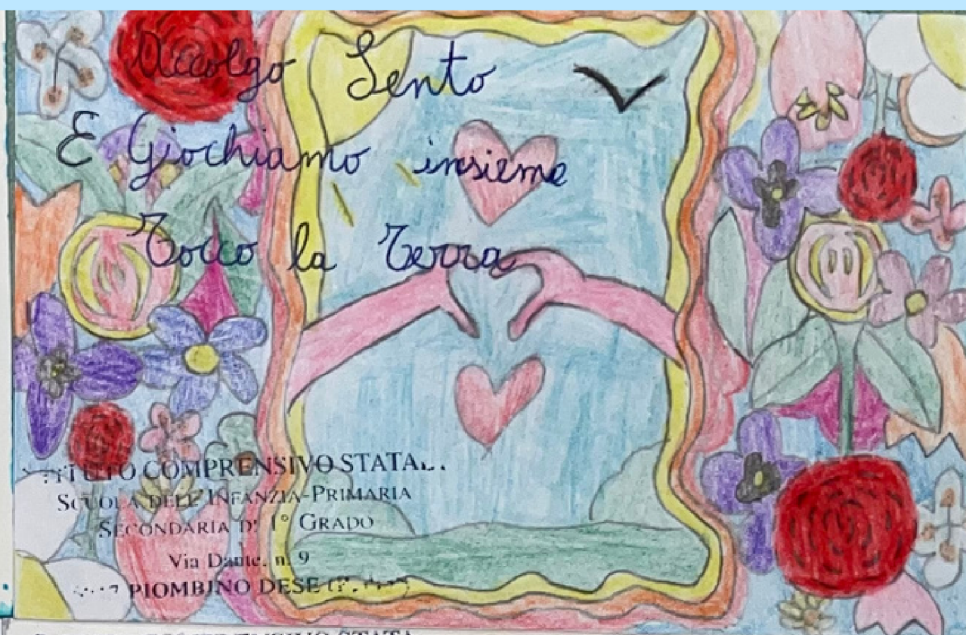 Accolgo Sento
E Giochiamo insieme
Tocco la Terra
COMPRENSIVO
SCUOLA DELL'INFANZIA-PRIMARIA
SECONDARIA DI 1° GRADO
Via Dante, n. 9
PIOMBINO DESE